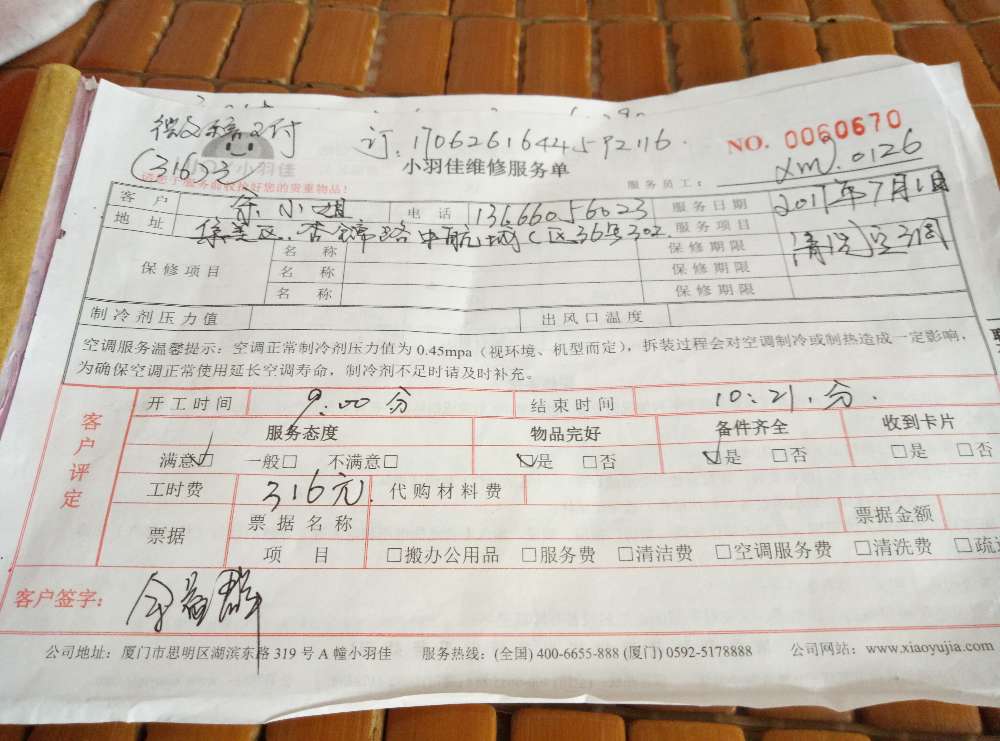 微支付 订:1706261644592116. NO. 0060670
(316元) 小羽佳
小羽佳维修服务单 服务员工: xm).0126
请您于服务前收拾好您的贵重物品!
客 户 余小姐 电 话 13666056023 服务日期 2017年7月1日
地 址 集美区.杏锦路中航城C区36号302 服务项目 清洗空调
保修项目 名 称 保修期限
名 称 保修期限
名 称 保修期限
制冷剂压力值 出风口温度
空调服务温馨提示: 空调正常制冷剂压力值为 0.45mpa(视环境、机型而定),拆装过程会对空调制冷或制热造成一定影响,
为确保空调正常使用延长空调寿命,制冷剂不足时请及时补充。
客户评定
开工时间 9:00分 结束时间 10:21.分.
服务态度 物品完好 备件齐全 收到卡片
满意☑ 一般□ 不满意□ ☑是 □否 ☑是 □否 □是 □否
工时费 316元. 代购材料费
票据 票据名称 票据金额
项 目 □搬办公用品 □服务费 □清洁费 □空调服务费 □清洗费 □疏
客户签字: 余益群
公司地址:厦门市思明区湖滨东路 319 号 A 幢小羽佳 服务热线:(全国) 400-6655-888 (厦门) 0592-5178888 公司网站:www.xiaoyujia.com